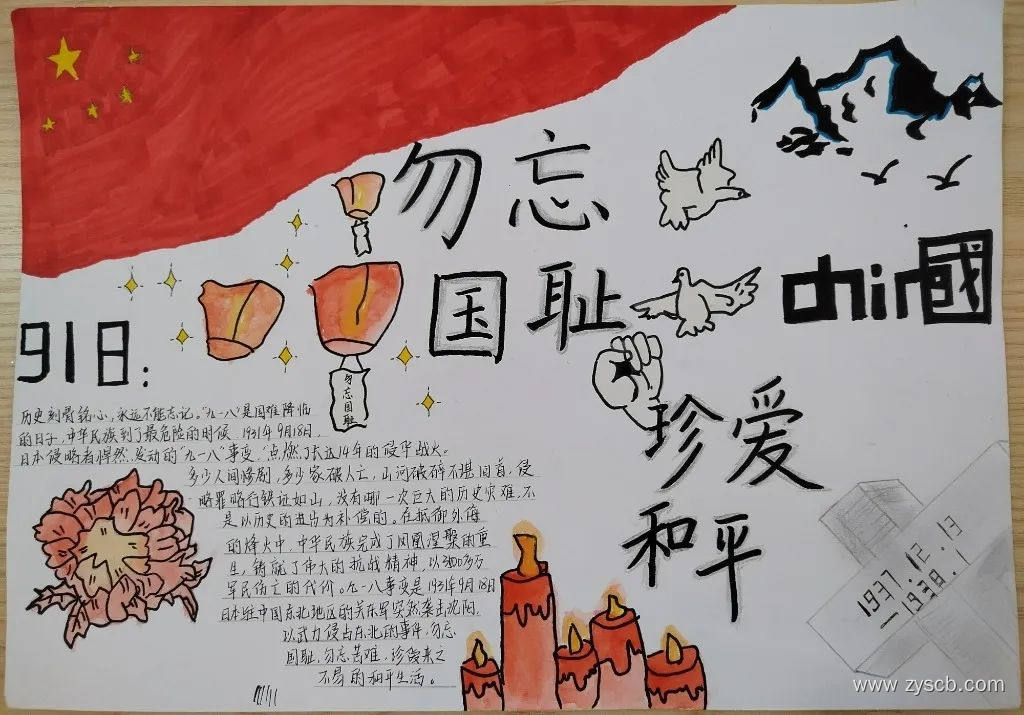 勿忘
国耻
chin國
勿忘国耻
918:
珍爱
和平
历史刻骨铭心，永远不能忘记。"九一八"是国难降临
的日子，中华民族到了最危险的时候，1931年9月18日，
日本侵略者悍然发动的"九一八"事变，点燃了长达14年的侵华战火。
多少人间惨剧，多少家破人亡，山河破碎不堪回首，侵
略罪行铁证如山，没有哪一次巨大的历史灾难，不
是以历史的进步为补偿的，在抵御外侮
的烽火中，中华民族完成了凤凰涅槃的重
生，铸就了伟大的抗战精神，以3500多万
军民伤亡的代价。九一八事变是1931年9月18日
日本驻中国东北地区的关东军突然袭击沈阳，
以武力侵占东北的事件，勿忘
国耻，勿忘苦难，珍爱来之
不易的和平生活。
1937.12.13
—1938.1
www.zyscb.com